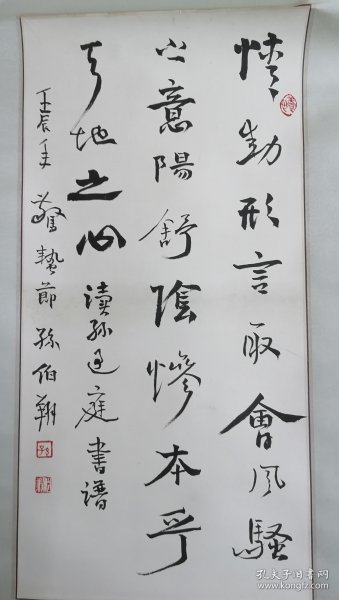 情動形言取會風騷
之意陽舒陰慘本乎
天地之心 讀孫過庭書譜
壬辰年驚蟄節孫伯翔
孔夫子旧书网
kongfz.com